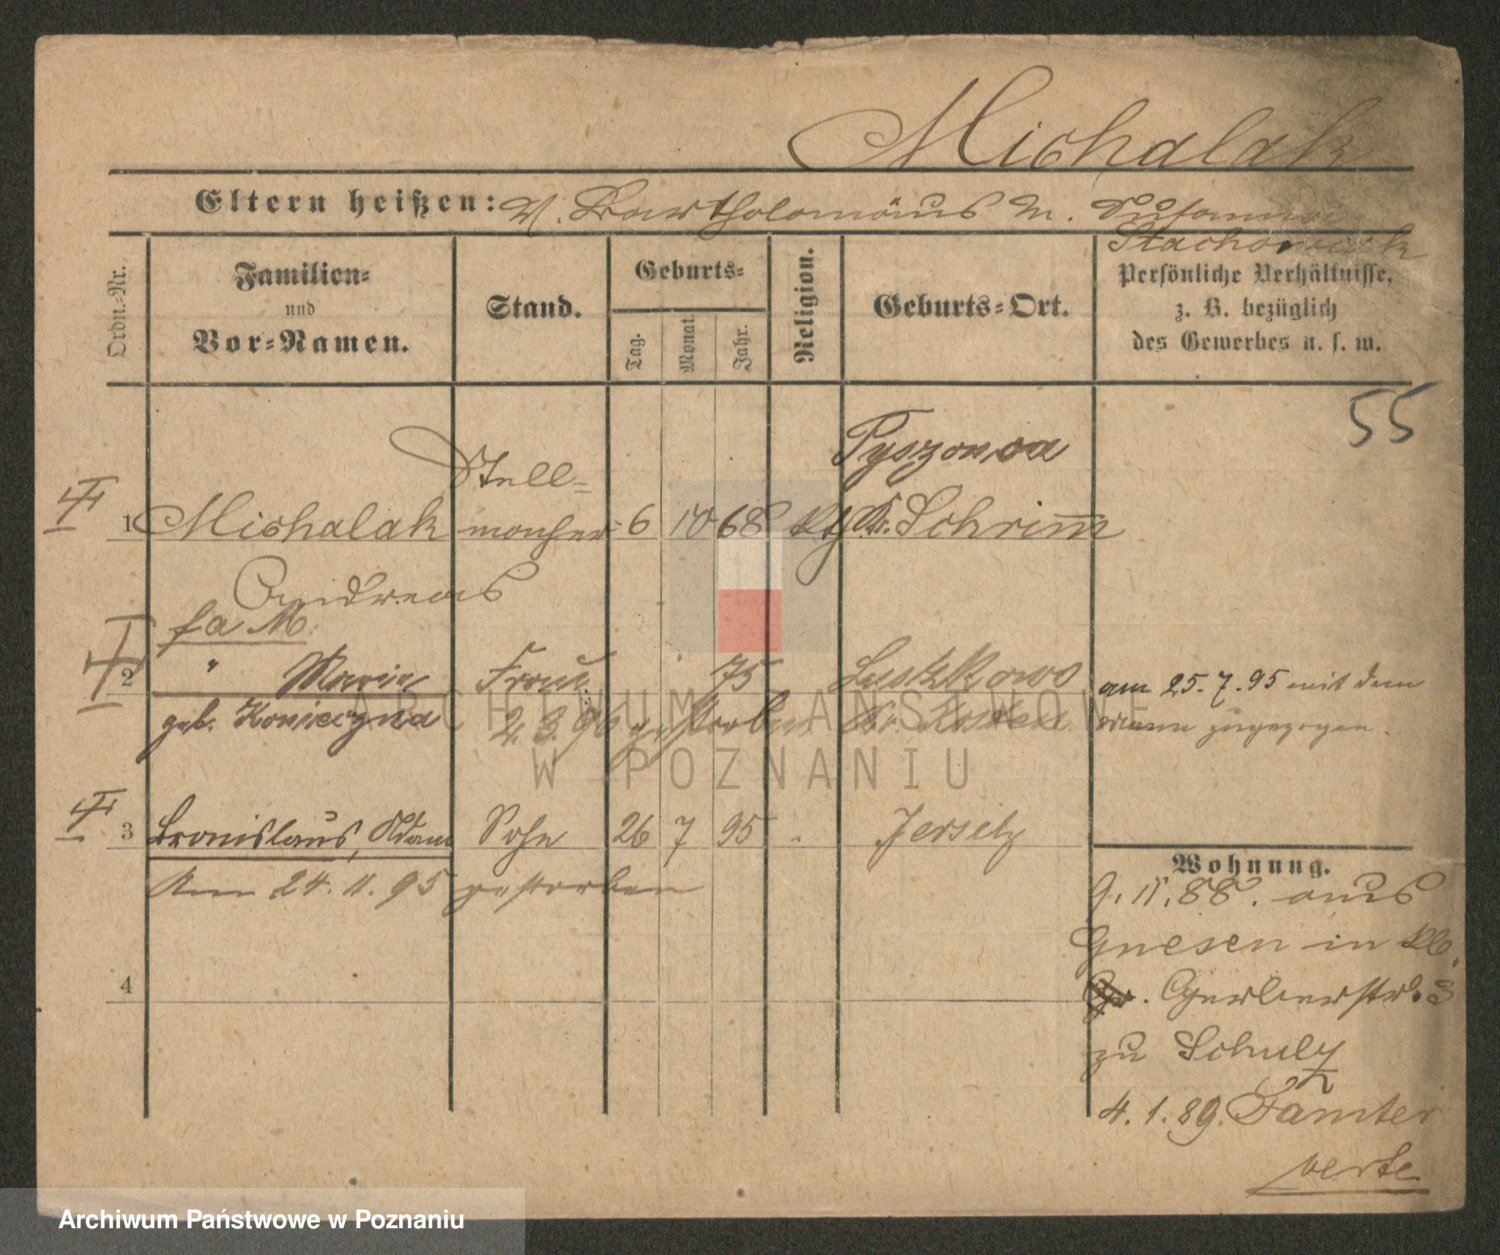 Michalak
Eltern heißen: V. Bartholomäus M. Susanna
Stachowiak
Ordn.-Nr.
Familien-
und
Vor-Namen.
Stand.
Geburts-
Tag.
Monat.
Jahr.
Religion.
Geburts-Ort.
Persönliche Verhältnisse,
z. B. bezüglich
des Gewerbes u. s. w.
55
Stell=
Pyszonca
1 Michalak macher 6 10 68 kth Kr. Schrimm
Andreas
fa M.
2 " Maria Frau 75
am 25.7.95 mit dem
geb. Konieczna 2.3.96 gestorben Kr. Kosten
Manne zugezogen.
3 Bronislaus, Adam Sohn 26 7 95 Jersitz
Am 24.11.95 gestorben
4
Wohnung.
9.11.88. aus
Gnesen in Kl.
Gr. Gerberstr. 3
zu Schulz
4.1.89. Samter
verte
ARCHIWUM PAŃSTWOWE
W POZNANIU
Archiwum Państwowe w Poznaniu